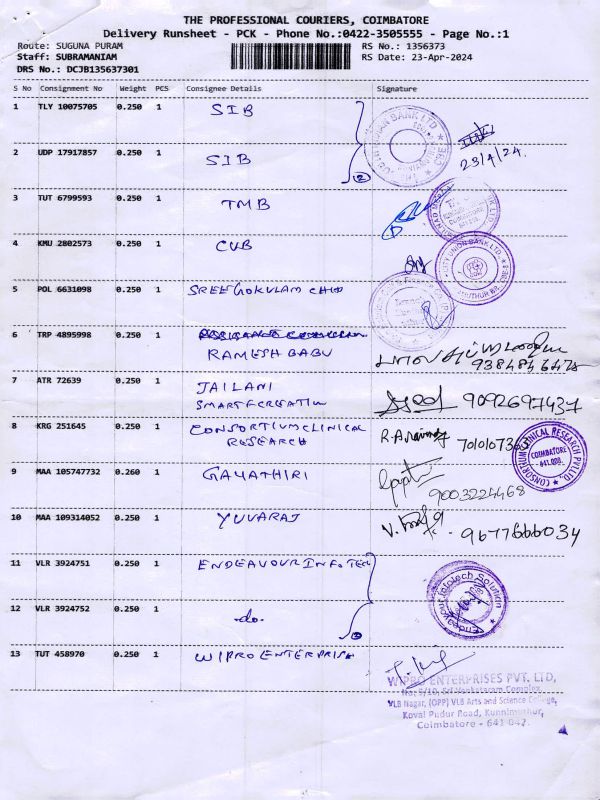 THE PROFESSIONAL COURIERS, COIMBATORE
Delivery Runsheet - PCK - Phone No.:0422-3505555 - Page No.:1
Route: SUGUNA PURAM RS No.: 1356373
Staff: SUBRAMANIAM RS Date: 23-Apr-2024
DRS No.: DCJB135637301
S No Consignment No Weight PCS Consignee Details Signature
1 TLY 10075705 0.250 1 SIB
23/4/24
2 UDP 17917857 0.250 1 SIB
2
3 TUT 6799593 0.250 1 TMB
4 KMU 2802573 0.250 1 CUB
5 POL 6631098 0.250 1 SREE GOKULAM CHID
6 TRP 4895998 0.250 1
RAMESH BABU
9384846478
7 ATR 72639 0.250 1 JAILANI
SMART CREATION 9092697437
8 KRG 251645 0.250 1 CONSORTIUM CLINICAL
RESEARCH
CONSORTIUM CLINICAL RESEARCH PVT LTD.
COIMBATORE
- 641 008.
9 MAA 105747732 0.260 1 GAYATHIRI
9003224468
10 MAA 109314052 0.250 1 YUVARAJ
9677666034
11 VLR 3924751 0.250 1 ENDEAVOUR INFOTECH
Endeavour Infotech Solution
12 VLR 3924752 0.250 1 -do-
2
13 TUT 458970 0.250 1 WIPRO ENTERPRISE
WIPRO ENTERPRISES PVT. LTD,
No: 9/10, Sri Venkataram Complex,
VLB Nagar, (OPP) VLB Arts and Science College,
Kovai Pudur Road, Kunnimuthur,
Coimbatore - 641 042.